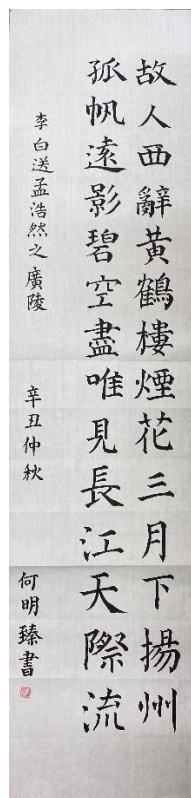 故人西辭黃鶴樓煙花三月下揚州
孤帆遠影碧空盡唯見長江天際流
李白送孟浩然之廣陵
辛丑仲秋
何明臻書